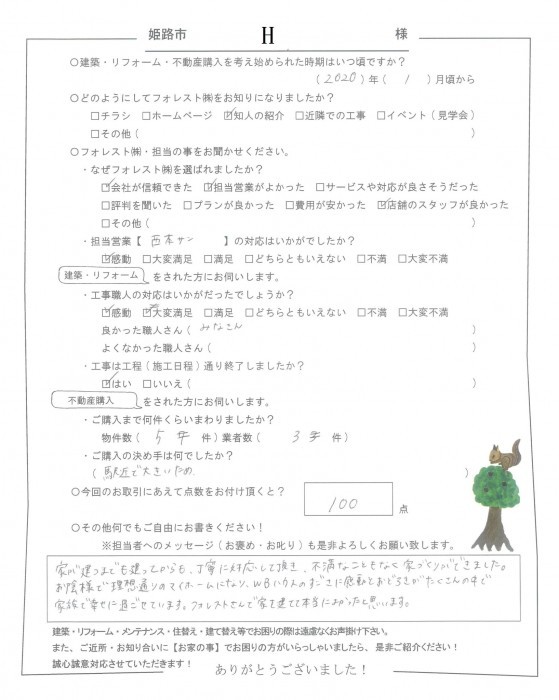 姫路市 H 様
○建築・リフォーム・不動産購入を考え始められた時期はいつ頃ですか？
（2020）年（ 1 ）月頃から
○どのようにしてフォレスト㈱をお知りになりましたか？
□チラシ □ホームページ ☑知人の紹介 □近隣での工事 □イベント（見学会）
□その他（ ）
○フォレスト㈱・担当の事をお聞かせください。
・なぜフォレスト㈱を選ばれましたか？
☑会社が信頼できた ☑担当営業がよかった □サービスや対応が良さそうだった
□評判を聞いた □プランが良かった □費用が安かった ☑店舗のスタッフが良かった
□その他（ ）
・担当営業【 西本サン 】の対応はいかがでしたか？
☑感動 □大変満足 □満足 □どちらともいえない □不満 □大変不満
建築・リフォーム をされた方にお伺いします。
・工事職人の対応はいかがだったでしょうか？
☑感動 ☑大変満足 □満足 □どちらともいえない □不満 □大変不満
良かった職人さん（ みなさん ）
よくなかった職人さん（ ）
・工事は工程（施工日程）通り終了しましたか？
☑はい □いいえ（ ）
不動産購入 をされた方にお伺いします。
・ご購入まで何件くらいまわりましたか？
物件数（ 5 件）業者数（ 3 件）
・ご購入の決め手は何でしたか？
（ 駅近で大きいため ）
○今回のお取引にあえて点数をお付け頂くと？ 100 点
○その他何でもご自由にお書きください！
※担当者へのメッセージ（お褒め・お叱り）も是非よろしくお願い致します。
家が建つまでも建ってからも、丁寧に対応して頂き、不満なこともなく家づくりができました。
お陰様で理想通りのマイホームになり、WBハウスのすごさに感動とおどろきがたくさんの中で
家族で幸せに過ごせています。フォレストさんで家を建てて本当によかったと思います。
建築・リフォーム・メンテナンス・住替え・建て替え等でお困りの際は遠慮なくお声掛け下さい。
また、ご近所・お知り合いに【お家の事】でお困りの方がいらっしゃいましたら、是非ご紹介ください！
誠心誠意対応させていただきます！
ありがとうございました！